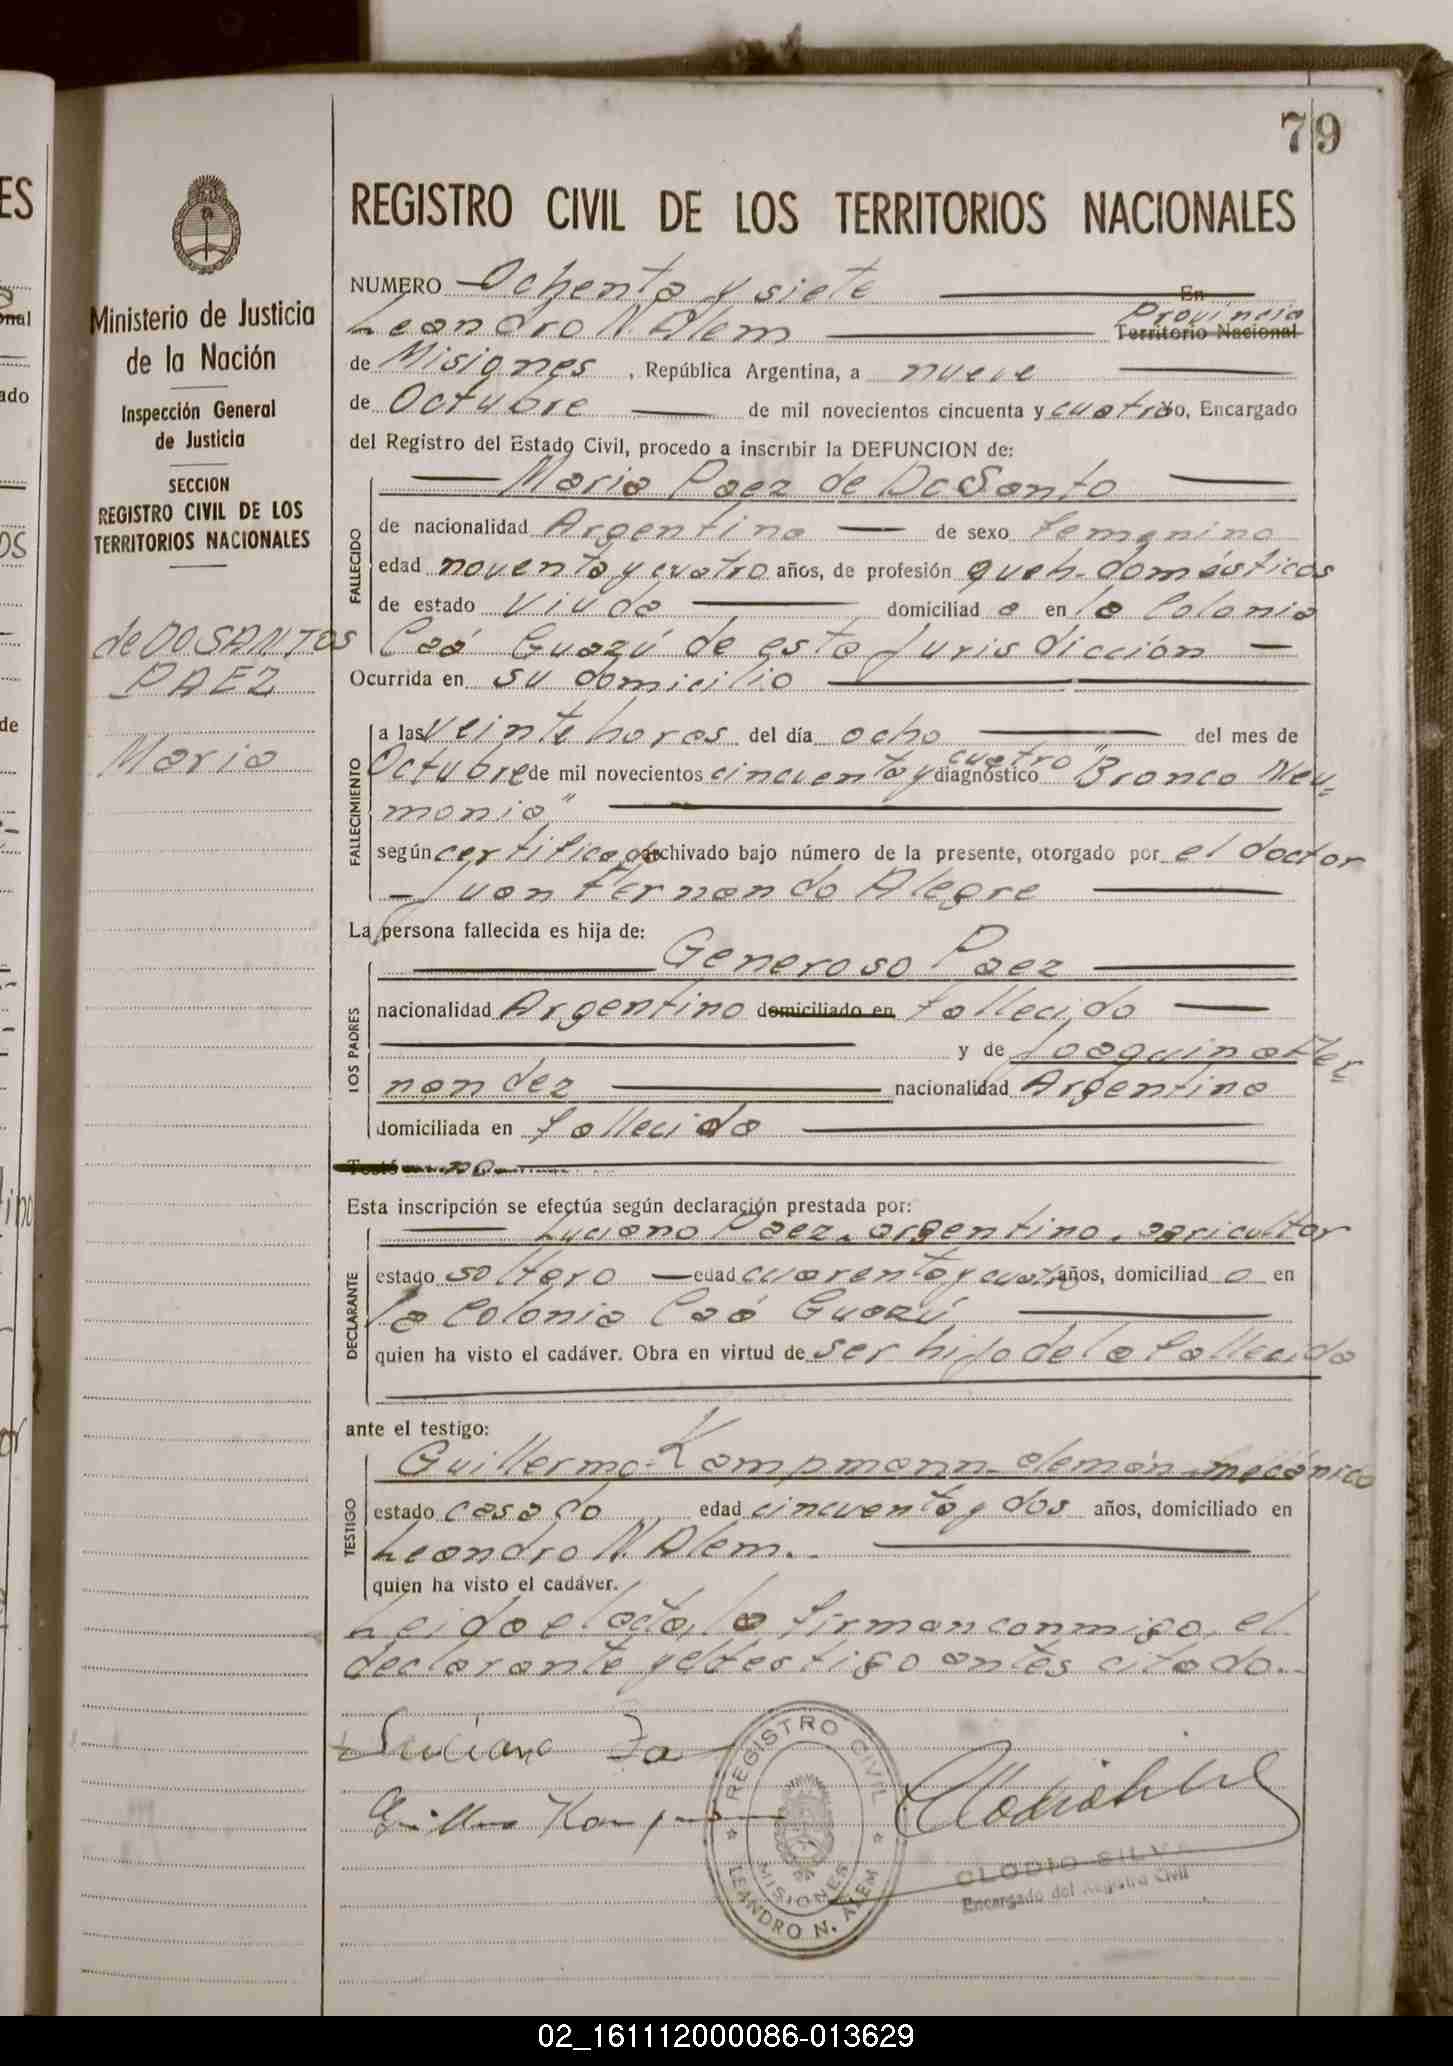 79
REGISTRO CIVIL DE LOS TERRITORIOS NACIONALES
Ministerio de Justicia
de la Nación
Inspección General
de Justicia
SECCION
REGISTRO CIVIL DE LOS
TERRITORIOS NACIONALES
de DO SANTOS
PAEZ
Maria
NUMERO Ochenta y siete En
Leandro N. Alem Provincia Territorio Nacional
de Misiones, República Argentina, a nueve
de Octubre de mil novecientos cincuenta y cuatro yo, Encargado
del Registro del Estado Civil, procedo a inscribir la DEFUNCION de:
FALLECIDO
Maria Paez de Do Santo
de nacionalidad Argentina de sexo femenino
edad noventa y cuatro años, de profesión queh. domésticos
de estado viuda domiciliad a en la Colonia
Caá Guazú de esta Jurisdicción
Ocurrida en su domicilio
FALLECIMIENTO
a las veinte horas del día ocho del mes de
Octubre de mil novecientos cincuenta y cuatro diagnóstico "Bronco Neu=
monia"
según certificado archivado bajo número de la presente, otorgado por el doctor
Juan Fernando Alegre
La persona fallecida es hija de:
LOS PADRES
Generoso Paez
nacionalidad Argentino domiciliado en fallecido
y de Joaquina Fer=
nandez nacionalidad Argentina
domiciliada en fallecida
Testó no
Esta inscripción se efectúa según declaración prestada por:
DECLARANTE
Luciano Paez. argentino. agricultor
estado soltero edad cuarenta y cuatro años, domiciliad o en
la Colonia Caá Guazú
quien ha visto el cadáver. Obra en virtud de ser hijo de la fallecida
ante el testigo:
TESTIGO
Guillermo Kampmann. alemán. mecánico
estado casado edad cincuenta y dos años, domiciliado en
Leandro N. Alem.
quien ha visto el cadáver.
Leida el acta, la firman conmigo, el
declarante y el testigo antes citado.
REGISTRO CIVIL
MISIONES
LEANDRO N. ALEM
CLODIO SILVA
Encargado del Registro Civil
02_161112000086-013629